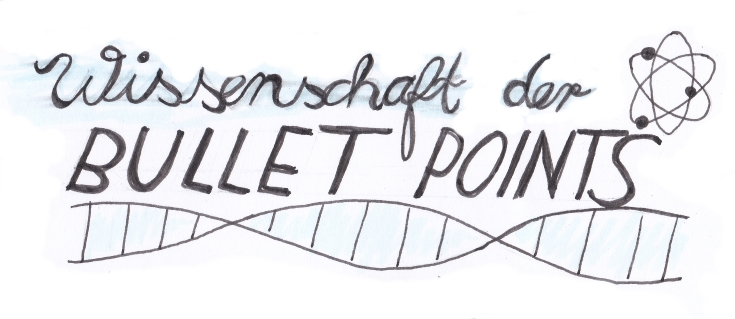 Wissenschaft der
BULLET POINTS